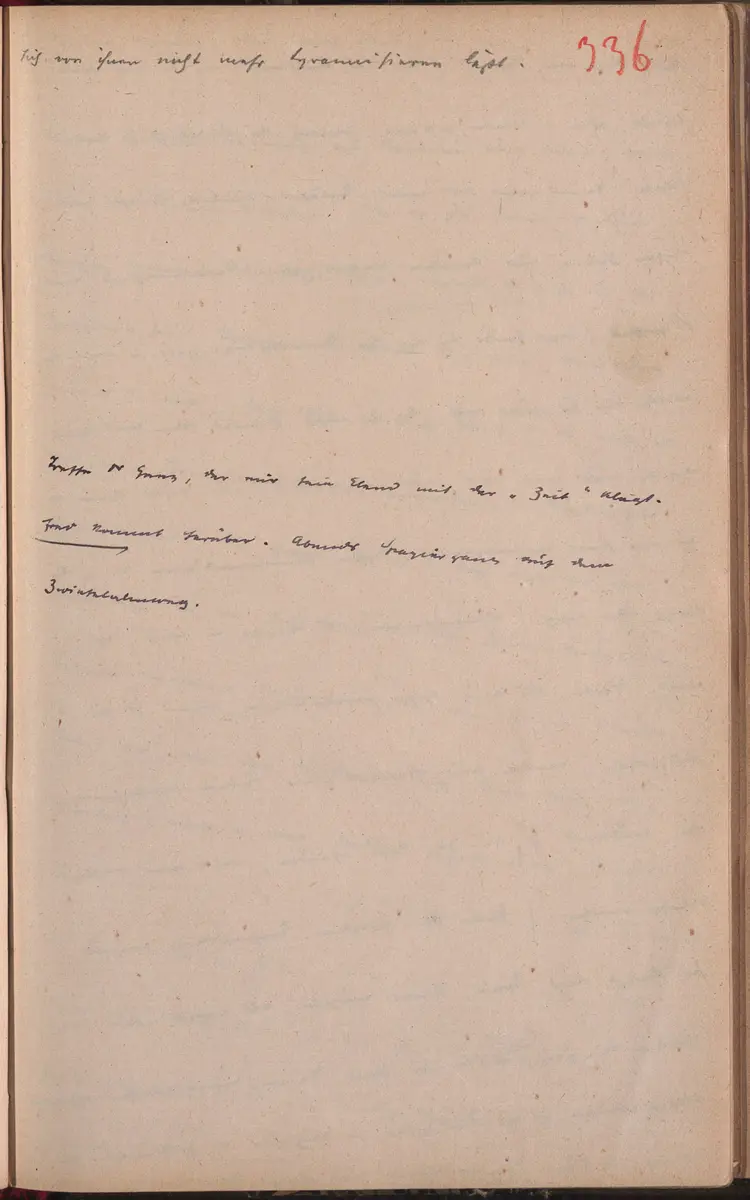 sich von ihnen nicht mehr tyrannisieren läßt.
336
Treffe Dr Ganz, der mir sein Elend mit der „Zeit“ klagt.
Fred kommt herüber. Abends Spaziergang auf dem